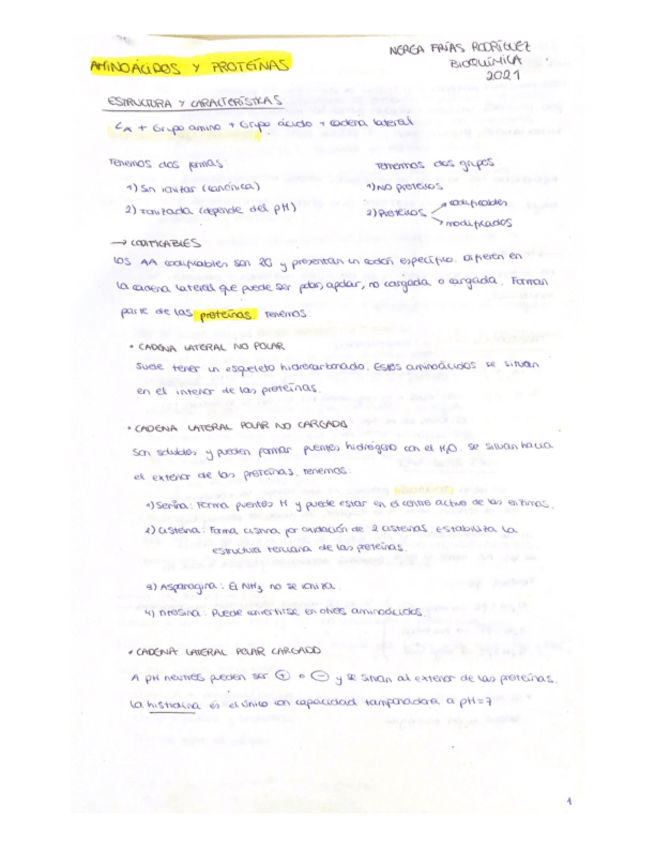 NEREA FRÍAS RODRÍGUEZ
BIOQUÍMICA
2021
AMINOÁCIDOS Y PROTEÍNAS
ESTRUCTURA Y CARACTERÍSTICAS
Cα + Grupo amino + Grupo ácido + cadena lateral
Tenemos dos formas:
1) Sin ionizar (canónica)
2) Ionizada (depende del pH)
Tenemos dos grupos
1) NO proteicos
2) Proteicos
codificables
modificados
→ CODIFICABLES
Los AA codificables son 20 y presentan un codón específico. Difieren en
la cadena lateral que puede ser polar, apolar, no cargada o cargada. Forman
parte de las proteínas. Tenemos:
• CADENA LATERAL NO POLAR
Suele tener un esqueleto hidrocarbonado. Estos aminoácidos se sitúan
en el interior de las proteínas.
• CADENA LATERAL POLAR NO CARGADA
Son solubles y pueden formar puentes hidrógeno con el H2O. Se sitúan hacia
el exterior de las proteínas. Tenemos:
1) Serina: Forma puentes H y puede estar en el centro activo de las enzimas.
2) Cisteína: Forma cistina por oxidación de 2 cisteínas estabiliza la
estructura terciaria de las proteínas.
3) Asparagina: El NH3 no se ioniza.
4) Tirosina: Puede convertirse en otros aminoácidos.
• CADENA LATERAL POLAR CARGADO
A pH neutros pueden ser + o - y se sitúan al exterior de las proteínas.
La histidina es el único con capacidad tamponadora a pH=7
1